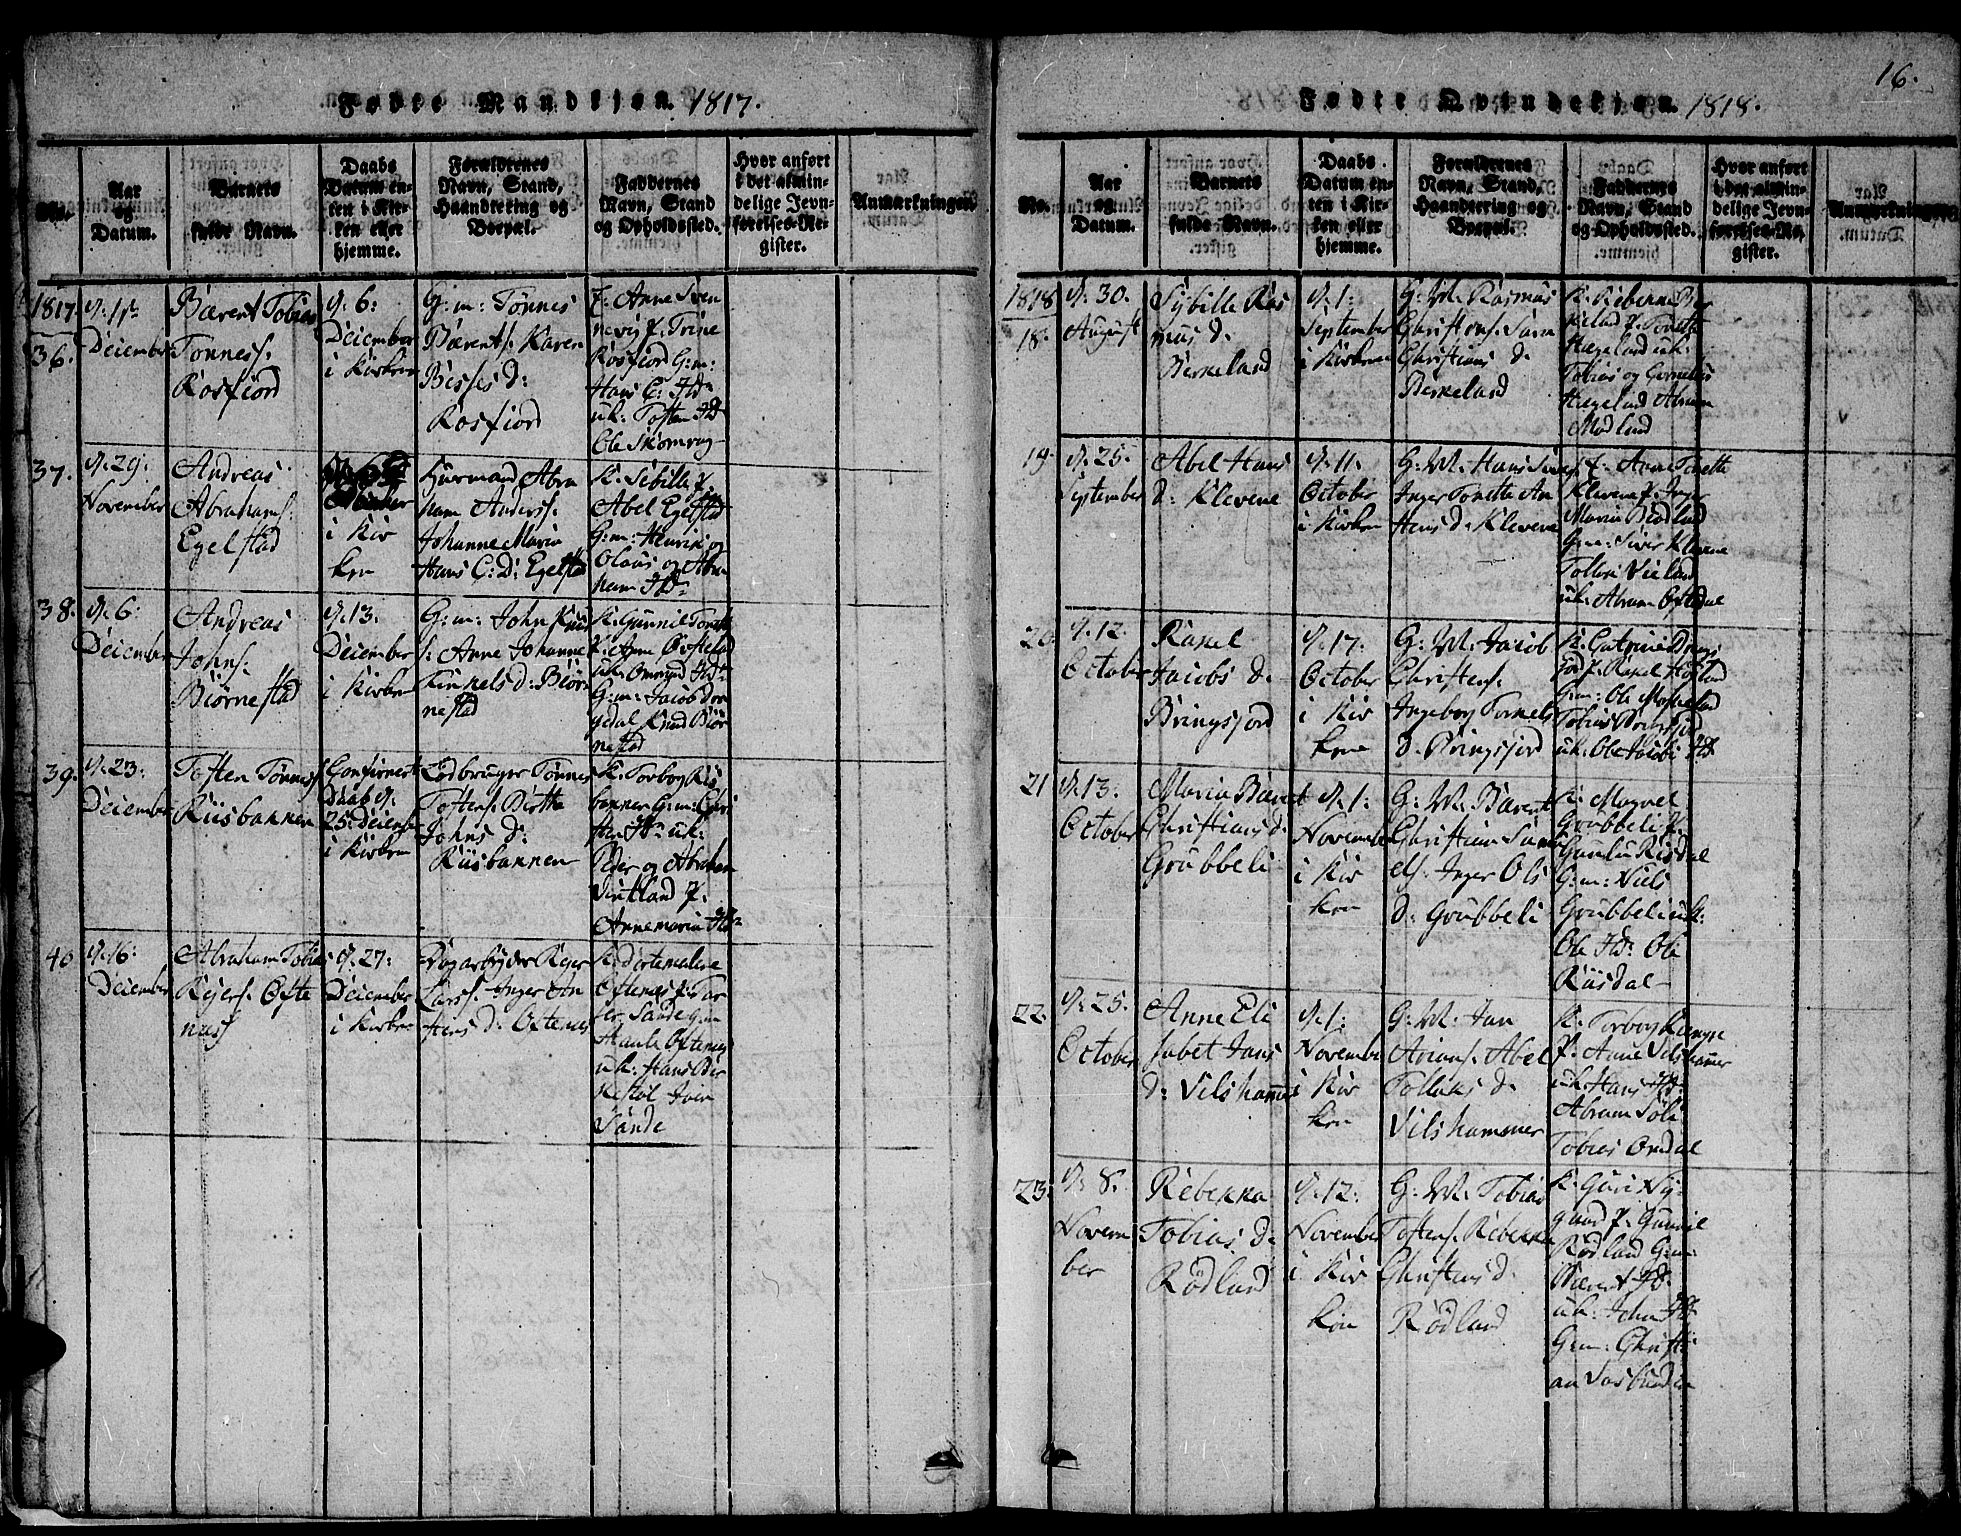 Fødte Mandkjøn. 1817.
No.
Aar og Datum.
Barnets fulde Navn.
Daabs Datum enten i Kirken eller hjemme.
Forældrenes Navn, Stand, Haandtering og Boepæl.
Faddernes Navn, Stand og Opholdssted.
Hvor anført i det almindelige Jevnførelses-Register.
Anmærkninger.
1817.
36.
d. 1st
December
Bærent Tobias
Tønness.
Rosfiord
d. 6:
December
i Kirken
G: m: Tønnes
Bærents. Karen
d:
Rosfiord
F. Anne Sven
nevig P. Trine
Rosfiord G: m:
Hans C: Ibd
uk: Tosten Ibd
Ole Skomrag
37.
d. 29:
November
Andreas
Abrahams.
Egelstad
i Kir
ken
Huusmand Abra
ham Anderss.
Johanne Maria
Hans C: D: Egelstad
K. Sibille P.
Abel Egelstad
G: m: Henrik og
Olaus og Abra
ham Ibd
38.
d. 6:
December
Andreas
Johns.
Biørnestad
d. 13.
December
i Kirken
G: m: John Knud
s. Anne Johanne
d: Biør
nestad
K. Gunnil Tonette
P. Anne
uk. Ibd
G: m: Jacob
Knud Biør
nestad
39.
d. 23:
December
Tosten Tønness.
Riisbakken
Confirmert
Daab d.
25: December
i Kirken
Tønnes
Tostens. Birthe
Johns d:
Riisbakken
K. Torborg Riis
bakken G: m: Chri
sten Ibd uk:
Peder og Abraham
P.
Annemaria Ibd
40
d. 16:
December
Abraham Tobias
Rejers. Ofte
næs
d. 27:
December
i Kirken
Rejer
Larss. Inger An
stens d: Oftenes
K. Dortemalene
Oftenes P.
Sande G: m:
Oftenes
uk: Hans Bir
kestøl Iver
Sande
16.
Fødte Qvindekjøn. 1818.
No.
Aar og Datum.
Barnets fulde Navn.
Daabs Datum enten i Kirken eller hjemme.
Forældrenes Navn, Stand, Haandtering og Boepæl.
Faddernes Navn, Stand og Opholdssted.
Hvor anført i det almindelige Jevnførelses-Register.
Anmærkninger.
1818
18.
d. 30.
August
Sybille Ras
mus d.
Berkeland
d. 1:
September
i Kirken
G: M: Rasmus
Christens. Sara
Christians d.
Berkeland
K. Rebekka Ber
keland P. Tonette
Hægeland uk:
Tobias og Cornelius
Hægeland Abram
Modland
19.
d. 25.
September
Abel Hans
d: Klevene
d. 11.
October
i Kirken
G: M: Hans
Inger Tonette An
stens d. Klevene
F. Anne Tonette
Klevene P. Inger
Maria Rødland
G: m: Siver Klevene
uk. Abram Oftedal
20.
d. 12.
October
Rakel
Jacobs d.
Bringsjord
d. 17.
October
i Kir
ken
G: M: Jacob
Christens.
Ingeborg Torkels
d. Bringsjord
K. Catrine Brings
jord P. Rakel
G: m: Ole
Tobias Bringsjord
uk: Ole Ibd
21
d. 13.
October
Maria Bærent
Christians d.
Grubbeli
d. 1:
November
i Kir
ken
G: M: Bærent
Christian Samu
els. Inger Ols
d: Grubbeli
K.
Grubbeli P.
Riisdal
G: m: Niels
Grubbeli uk:
Ole Ibd: Ole
Riisdal
22.
d. 25.
October
Anne Eli
sabet Jans
d: Vilshammer
d. 1:
November
i Kir
ken
G: M: Jan
Arians. Abel
Tollaks d.
Vilshammer
K. Torborg
P. Anne Vilshammer
uk. Hans Ibd
Abram
Tobias Omdal
23.
d. 8.
Novem
ber
Rebekka
Tobias d.
Rødland
d. 12.
November
i Kir
ken
G: M: Tobias
Tostens. Rebekka
Christens d.
Rødland
K. Guri Ny
gaard P. Gunnil
Rødland G: m:
Bærent Ibd:
uk: John Ibd
G: m: Christi
an